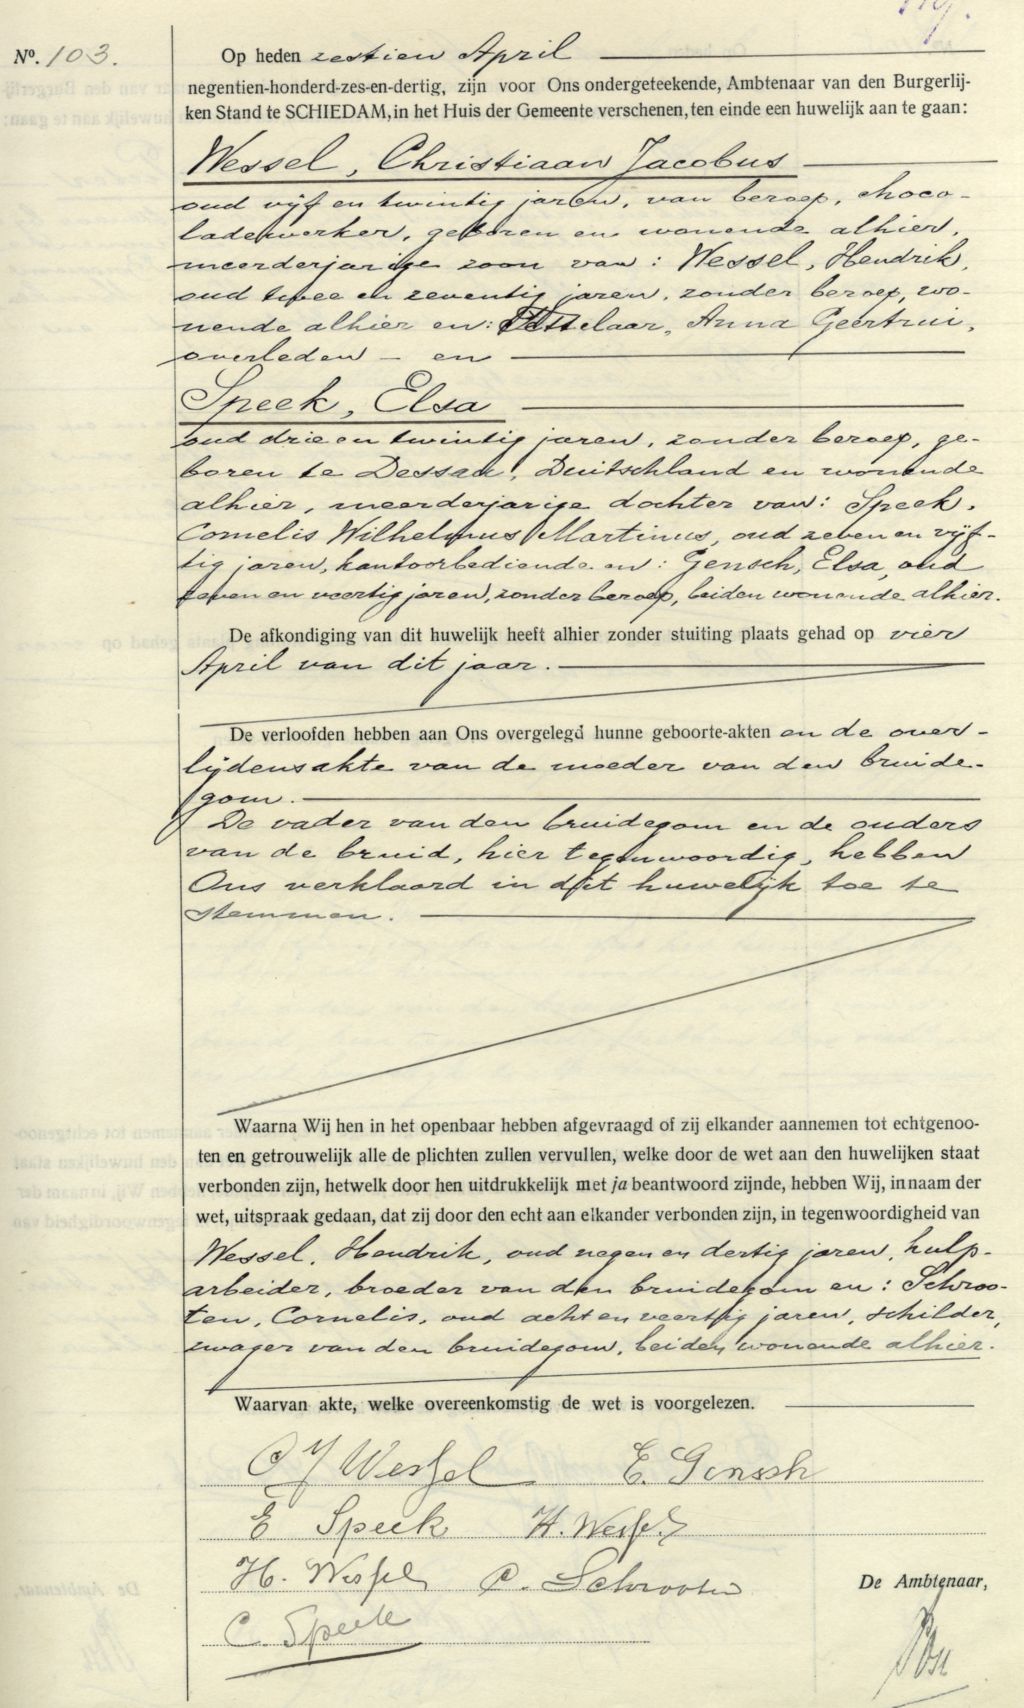 Nº. 103.
Op heden zestien April
negentien-honderd-zes-en-dertig, zijn voor Ons ondergeteekende, Ambtenaar van den Burgerlij-
ken Stand te SCHIEDAM, in het Huis der Gemeente verschenen, ten einde een huwelijk aan te gaan:
Wessel, Christiaan Jacobus
oud vijf en twintig jaren, van beroep, choco-
ladewerker, geboren en wonende alhier,
meerderjarige zoon van: Wessel, Hendrik,
oud twee en zeventig jaren, zonder beroep, wo-
nende alhier en: Anna Geertrui,
overleden - en
Speek, Elsa
oud drie en twintig jaren, zonder beroep, ge-
boren te Dessau, Duitschland en wonende
alhier, meerderjarige dochter van: Speek,
Cornelis Wilhelmus Martinus, oud zeven en vijf-
tig jaren, kantoorbediende en: Gensch, Elsa, oud
zeven en veertig jaren, zonder beroep, beiden wonende alhier.
De afkondiging van dit huwelijk heeft alhier zonder stuiting plaats gehad op vier
April van dit jaar.
De verloofden hebben aan Ons overgelegd hunne geboorte-akten en de over-
lijdensakte van de moeder van den bruide-
gom.
De vader van den bruidegom en de ouders
van de bruid, hier tegenwoordig, hebben
Ons verklaard in dit huwelijk toe te
stemmen.
Waarna Wij hen in het openbaar hebben afgevraagd of zij elkander aannemen tot echtgenoo-
ten en getrouwelijk alle de plichten zullen vervullen, welke door de wet aan den huwelijken staat
verbonden zijn, hetwelk door hen uitdrukkelijk met ja beantwoord zijnde, hebben Wij, in naam der
wet, uitspraak gedaan, dat zij door den echt aan elkander verbonden zijn, in tegenwoordigheid van
Wessel, Hendrik, oud negen en dertig jaren, hulp-
arbeider, broeder van den bruidegom en: Schroo-
ten, Cornelis, oud acht en veertig jaren, schilder,
zwager van den bruidegom, beiden wonende alhier.
Waarvan akte, welke overeenkomstig de wet is voorgelezen.
C J Wessel E. Gensch
E Speek H. Wessel
H. Wessel C. Schrooten
De Ambtenaar,
C. Speek